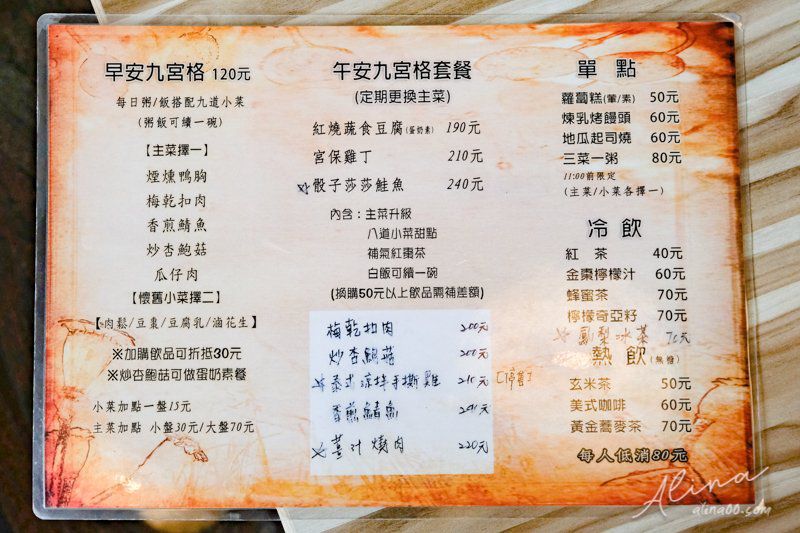 早安九宮格 120元
每日粥/飯搭配九道小菜
(粥飯可續一碗)
【主菜擇一】
煙燻鴨胸
梅乾扣肉
香煎鯖魚
炒杏鮑菇
瓜仔肉
【懷舊小菜擇二】
【肉鬆/豆棗/豆腐乳/滷花生】
※加購飲品可折抵30元
※炒杏鮑菇可做蛋奶素餐
小菜加點一盤15元
主菜加點 小盤30元/大盤70元
午安九宮格套餐
(定期更換主菜)
紅燒蔬食豆腐(蛋奶素) 190元
宮保雞丁 210元
☆骰子莎莎鮭魚 240元
內含：主菜升級
八道小菜甜點
補氣紅棗茶
白飯可續一碗
(換購50元以上飲品需補差額)
梅乾扣肉 200元
炒杏鮑菇 200元
☆泰式涼拌手撕雞 210元
香煎鯖魚
☆薑汁燒肉 220元
單點
蘿蔔糕(葷/素) 50元
煉乳烤饅頭 60元
地瓜起司燒 60元
三菜一粥 80元
11:00前限定
(主菜/小菜各擇一)
冷飲
紅茶 40元
金棗檸檬汁 60元
蜂蜜茶 70元
檸檬奇亞籽 70元
☆鳳梨冰茶 70元
熱飲(無糖)
玄米茶 50元
美式咖啡 60元
黃金蕎麥茶 70元
每人低消80元
Alina
alina00.com